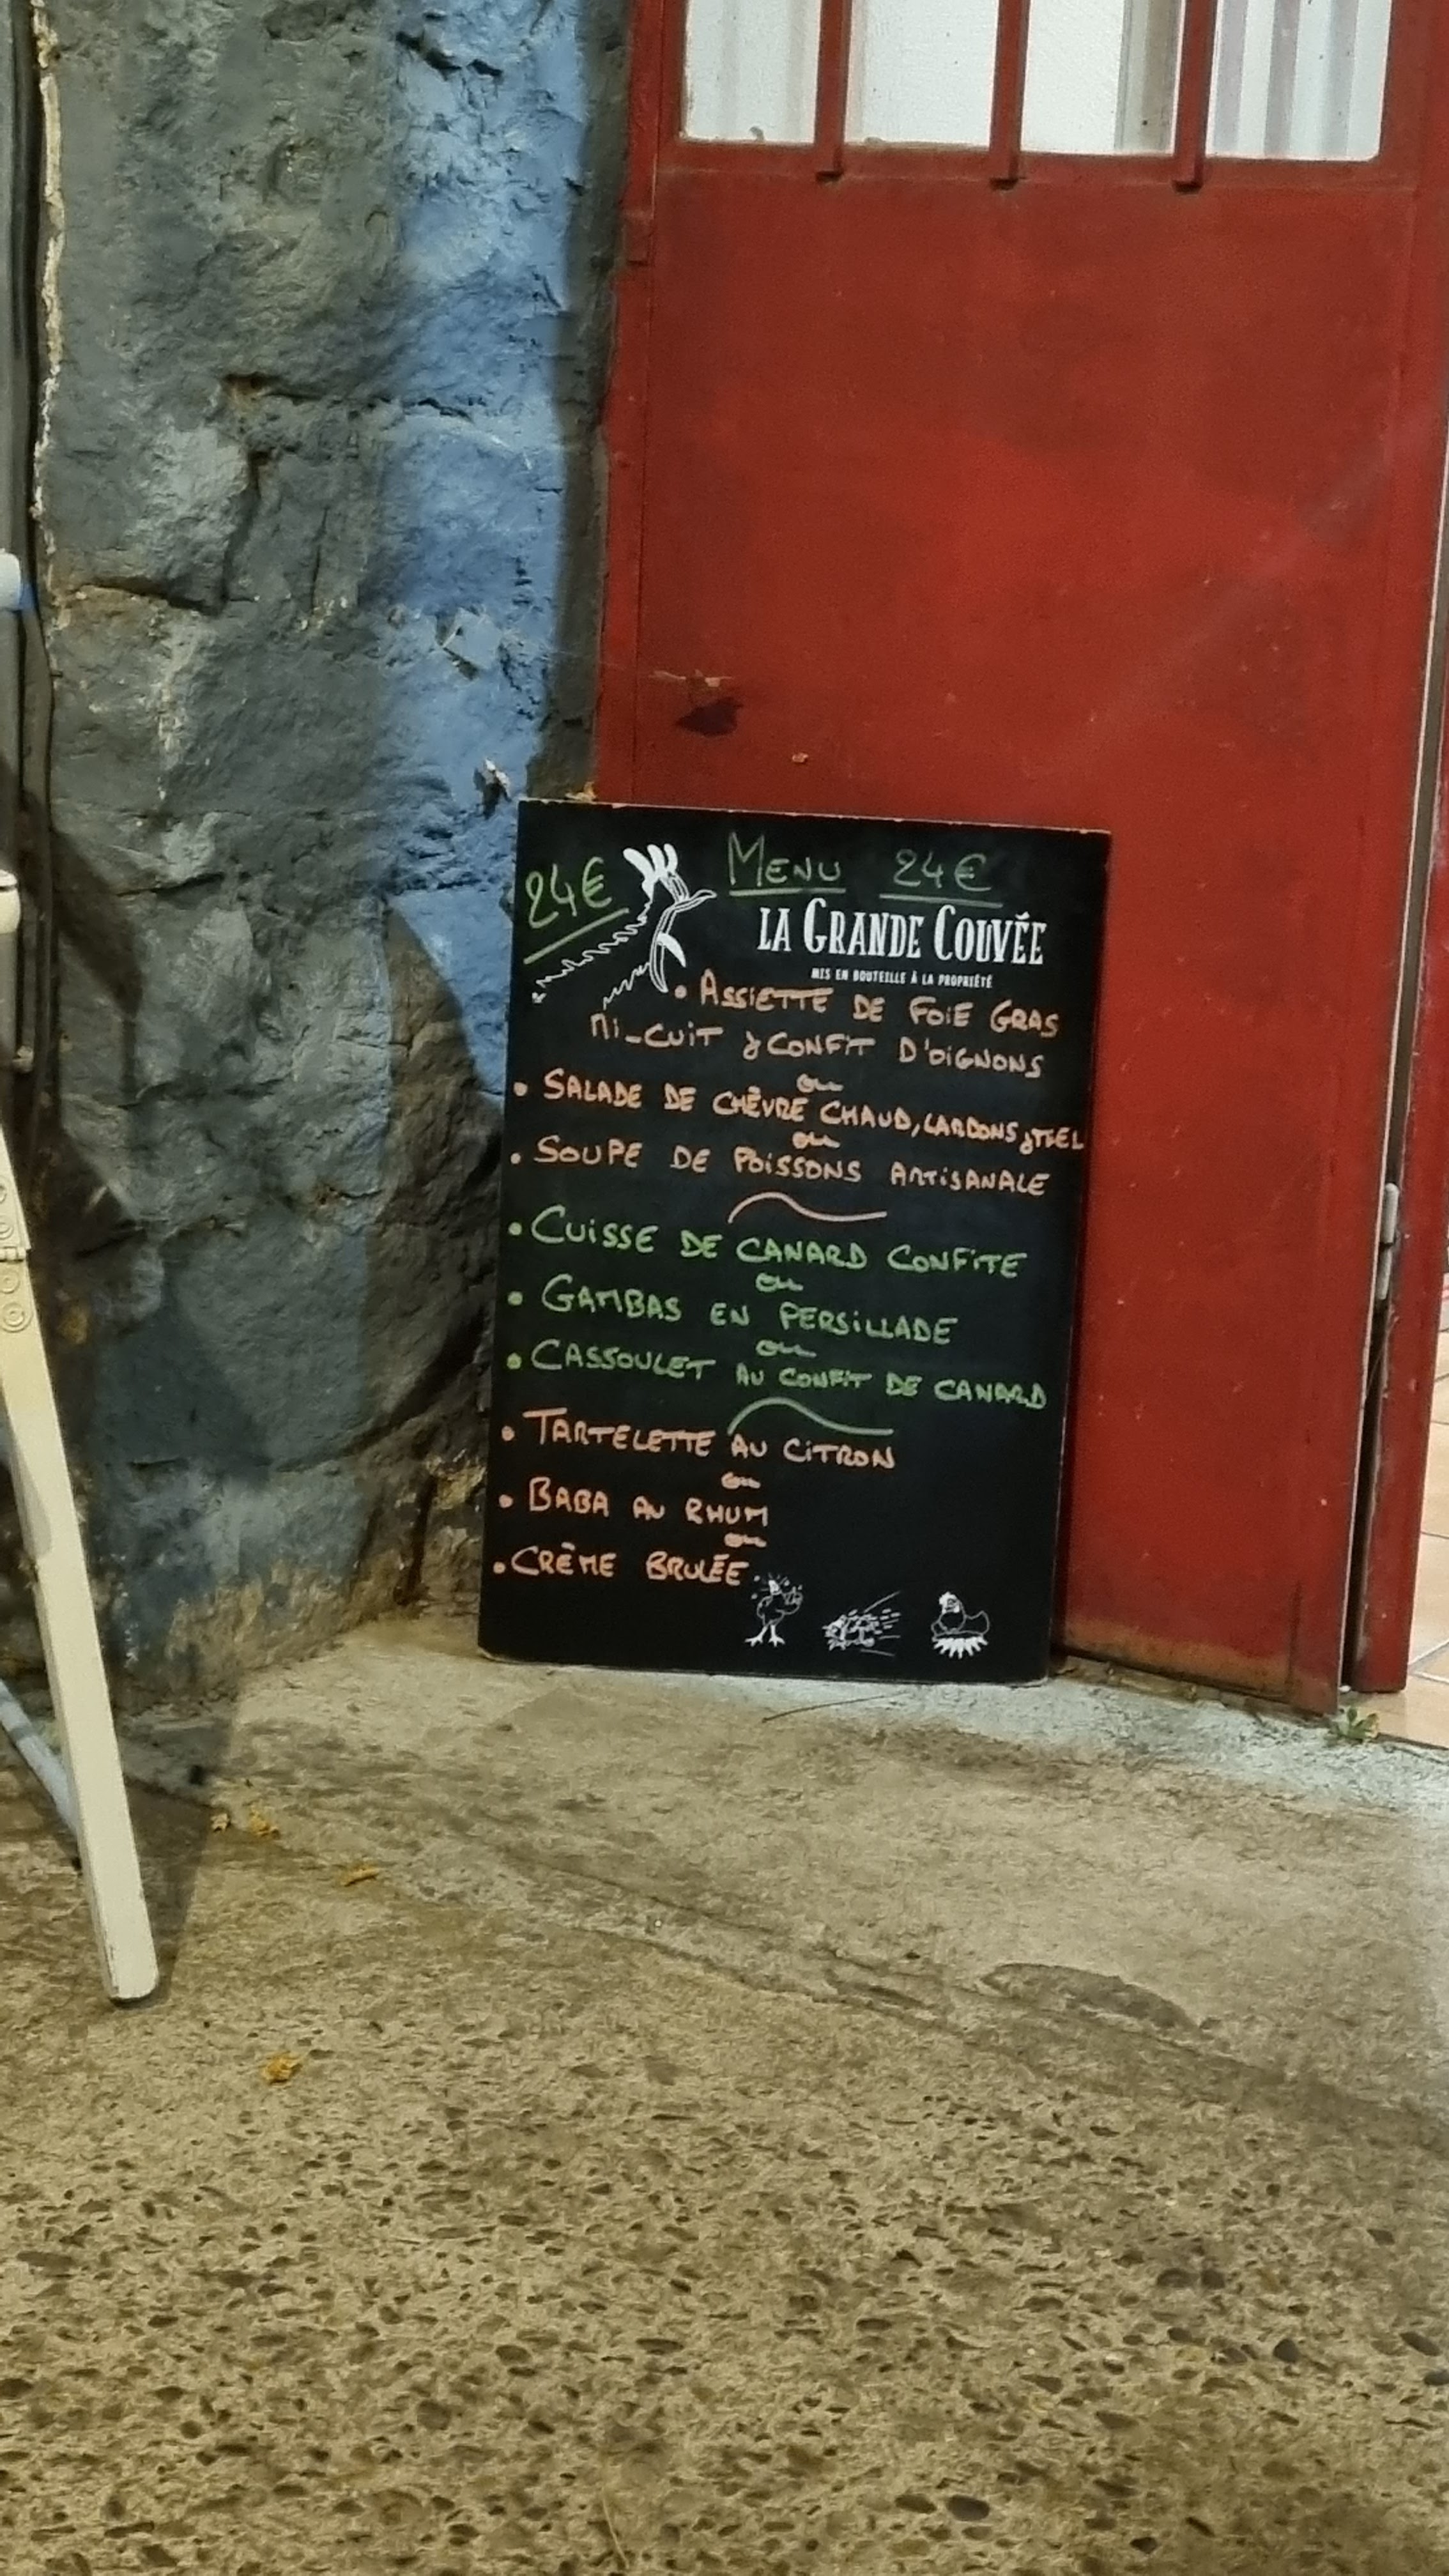 24€
MENU 24€
LA GRANDE COUVÉE
MIS EN BOUTEILLE À LA PROPRIÉTÉ
• ASSIETTE DE FOIE GRAS
MI-CUIT & CONFIT D'OIGNONS
ou
• SALADE DE CHÈVRE CHAUD, LARDONS &
ou
• SOUPE DE POISSONS ARTISANALE
• CUISSE DE CANARD CONFITE
ou
• GAMBAS EN PERSILLADE
ou
• CASSOULET AU CONFIT DE CANARD
• TARTELETTE AU CITRON
ou
• BABA AU RHUM
ou
• CRÈME BRULÉE.